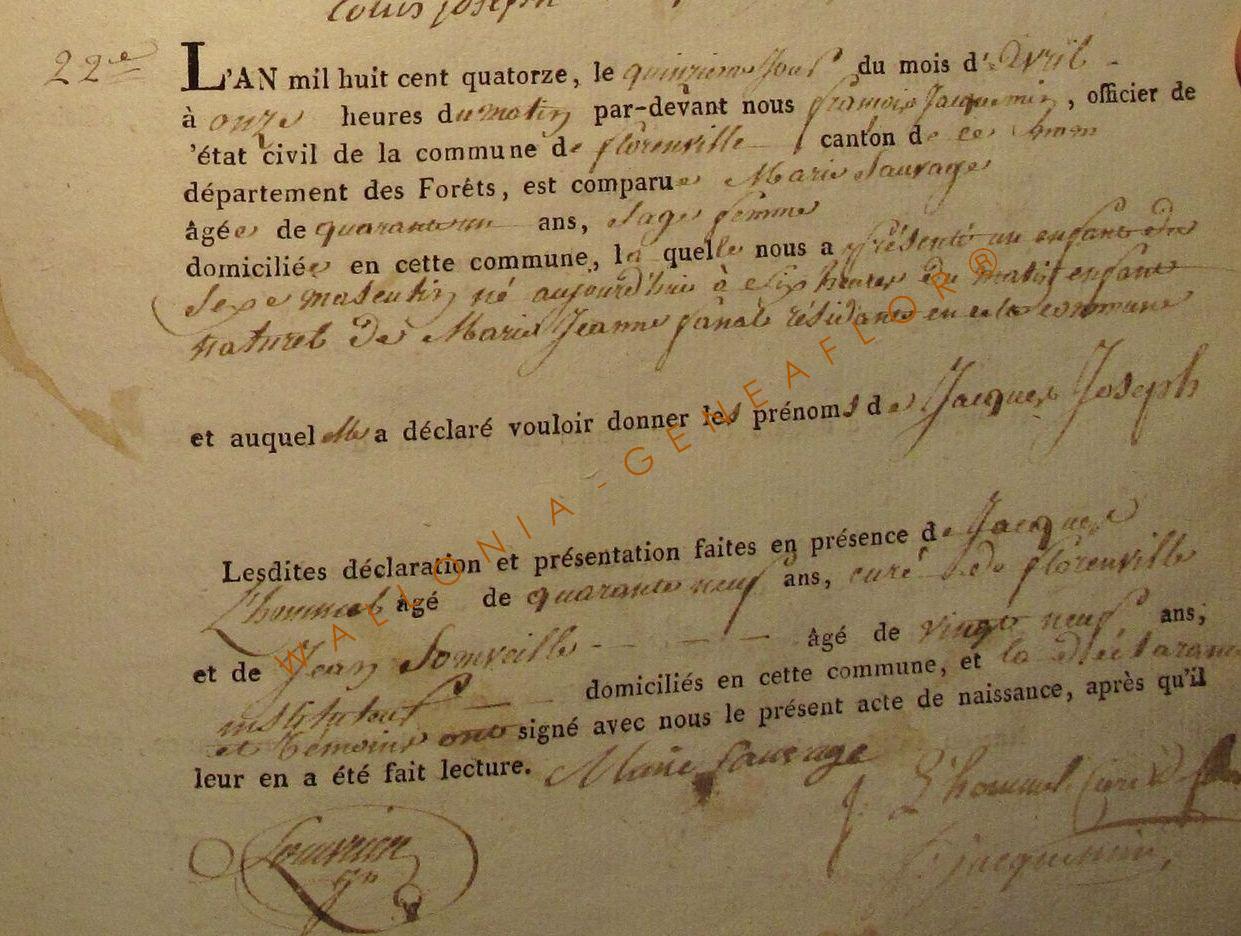 Louis joseph
22e L'AN mil huit cent quatorze, le quinzieme jour du mois d'Avril
à onze heures du matin par-devant nous françois Jacquemin, officier de
'état civil de la commune de florenville canton de ce nom
département des Forêts, est comparue Marie Sauvage
âgée de quarante un ans, Sage femme
domiciliée en cette commune, la quelle nous a présenté un enfant du
Sexe masculin né aujourd'hui à Six heures du matin enfant
naturel de Marie Jeanne résidante en cette commune
et auquel elle a déclaré vouloir donner les prénoms de Jacques Joseph
Lesdites déclaration et présentation faites en présence de Jacques
L'hommel âgé de quarante neuf ans, curé de florenville
et de Jean âgé de vingt neuf ans,
instituteur domiciliés en cette commune, et la déclarante
et témoins ont signé avec nous le présent acte de naissance, après qu'il
leur en a été fait lecture. Marie Sauvage
J. L'hommel Curé d
f. jacquemin,
WALLONIA-GENEAFLOR®